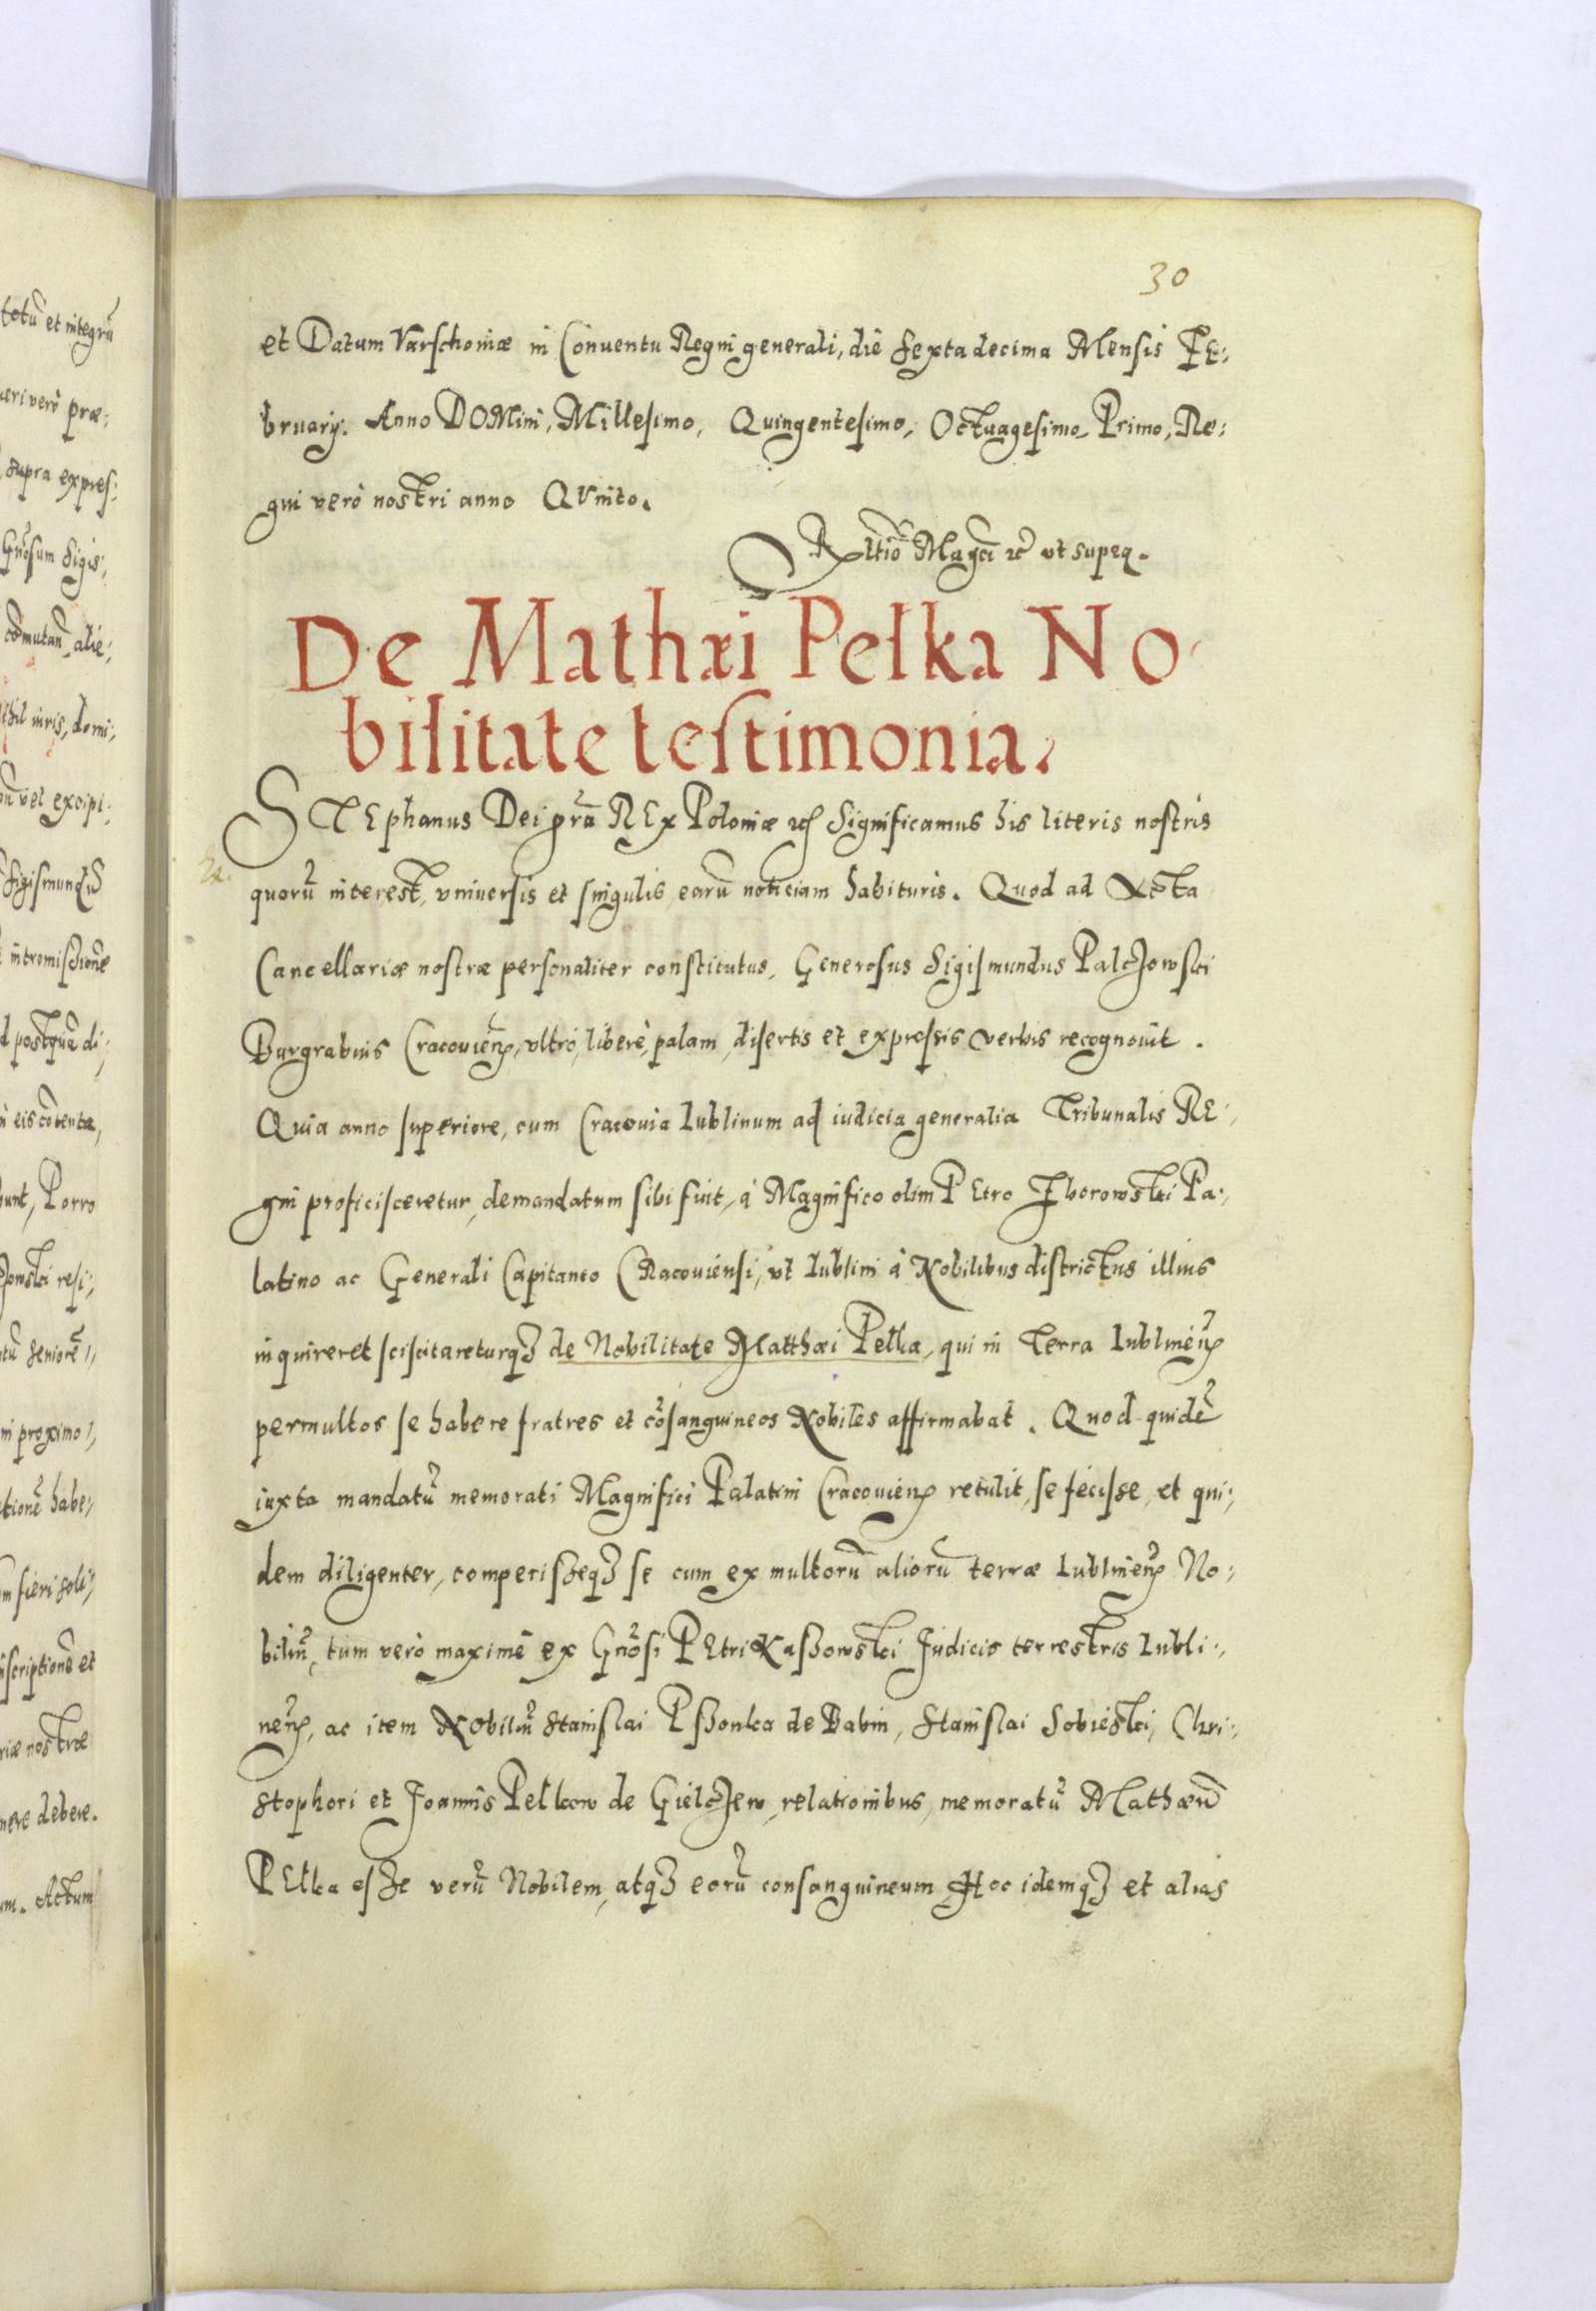 totũ et integrũ
veri verò præ:
supra expres:
Gñosum Sigis:
com̃utan̄ alie:
iuris, domi:
vel excipi:
Sigismundũ
intromissionẽ
postquã di:
eis cõtenta,
bunt, Porro
resi:
Seniorẽ
in proximo
habe:
fieri soli:
inscriptionẽ et
nostræ
debere.
um. Actum
30
et Datum Varschoviæ in Conuentu Regni generali, die Sexta decima Mensis FE:
bruarÿ. Anno DOMini, Millesimo, Quingentesimo, Octuagesimo Primo, Re:
gni verò nostri anno QVinto.
Rltio Magci etc̃ ut supeq.
De Mathæi Pelka No
bilitate testimonia.
STEphanus Dei gra REx Poloniæ etc Significamus his literis nostris
quorũ interest, vniuersis et singulis, earũ noticiam habituris. Quod ad Acta
Cancellariæ nostræ personaliter constitutus, Generosus Sigismundus Palczowski
Burgrabius Cracouieñ, vltrò, liberè, palam, disertis et expressis verbis recognouit.
Quia anno superiore, cum Cracouia Lublinum ad iudicia generalia Tribunalis RE:
gni proficisceretur, demandatum sibi fuit, à Magnifico olim PEtro Zborowski Pa:
latino ac Generali Capitaneo CRacouiensi, vt Lublini à Nobilibus districtus illius
inquireret sciscitareturqȝ de Nobilitate Matthæi Pelka, qui in Terra Lublineñ
permultos se habere fratres et cõsanguineos Nobiles affirmabat. Quod quidẽ
iuxta mandatũ memorati Magnifici Palatini Cracouieñ retulit, se fecisse, et qui:
dem diligenter, comperisseqȝ se cum ex multorũ aliorũ terræ Lublineñ No:
biliũ, tum verò maximè ex Gñosi PEtri Kaszowski Judicis terrestris Lubli:
neñ, ac item Nobiliũ Stanislai Pszonka de Babin, Stanislai Sobieski, Chri:
stophori et Joannis Pelkow de Gielczew, relationibus, memoratũ Mathæũ
PElka esse verũ Nobilem, atqȝ eorũ consanguineum Hoc idemqȝ et alias